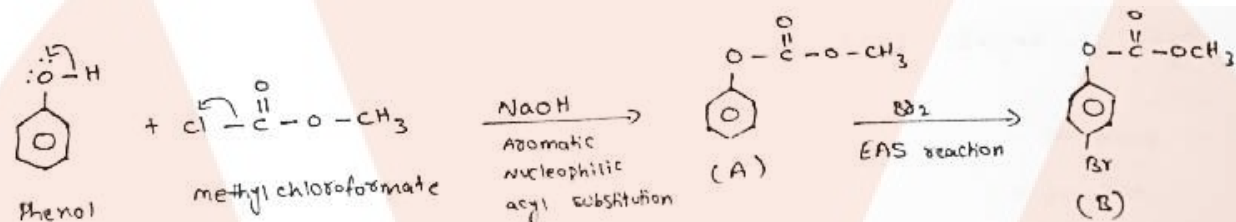 :O – H
+ Cl – C – O – CH3
O
Phenol
methyl chloroformate
NaOH
Aromatic
Nucleophilic
acyl substitution
O
O – C – O – CH3
(A)
Br2
EAS reaction
O
O – C – OCH3
Br
(B)